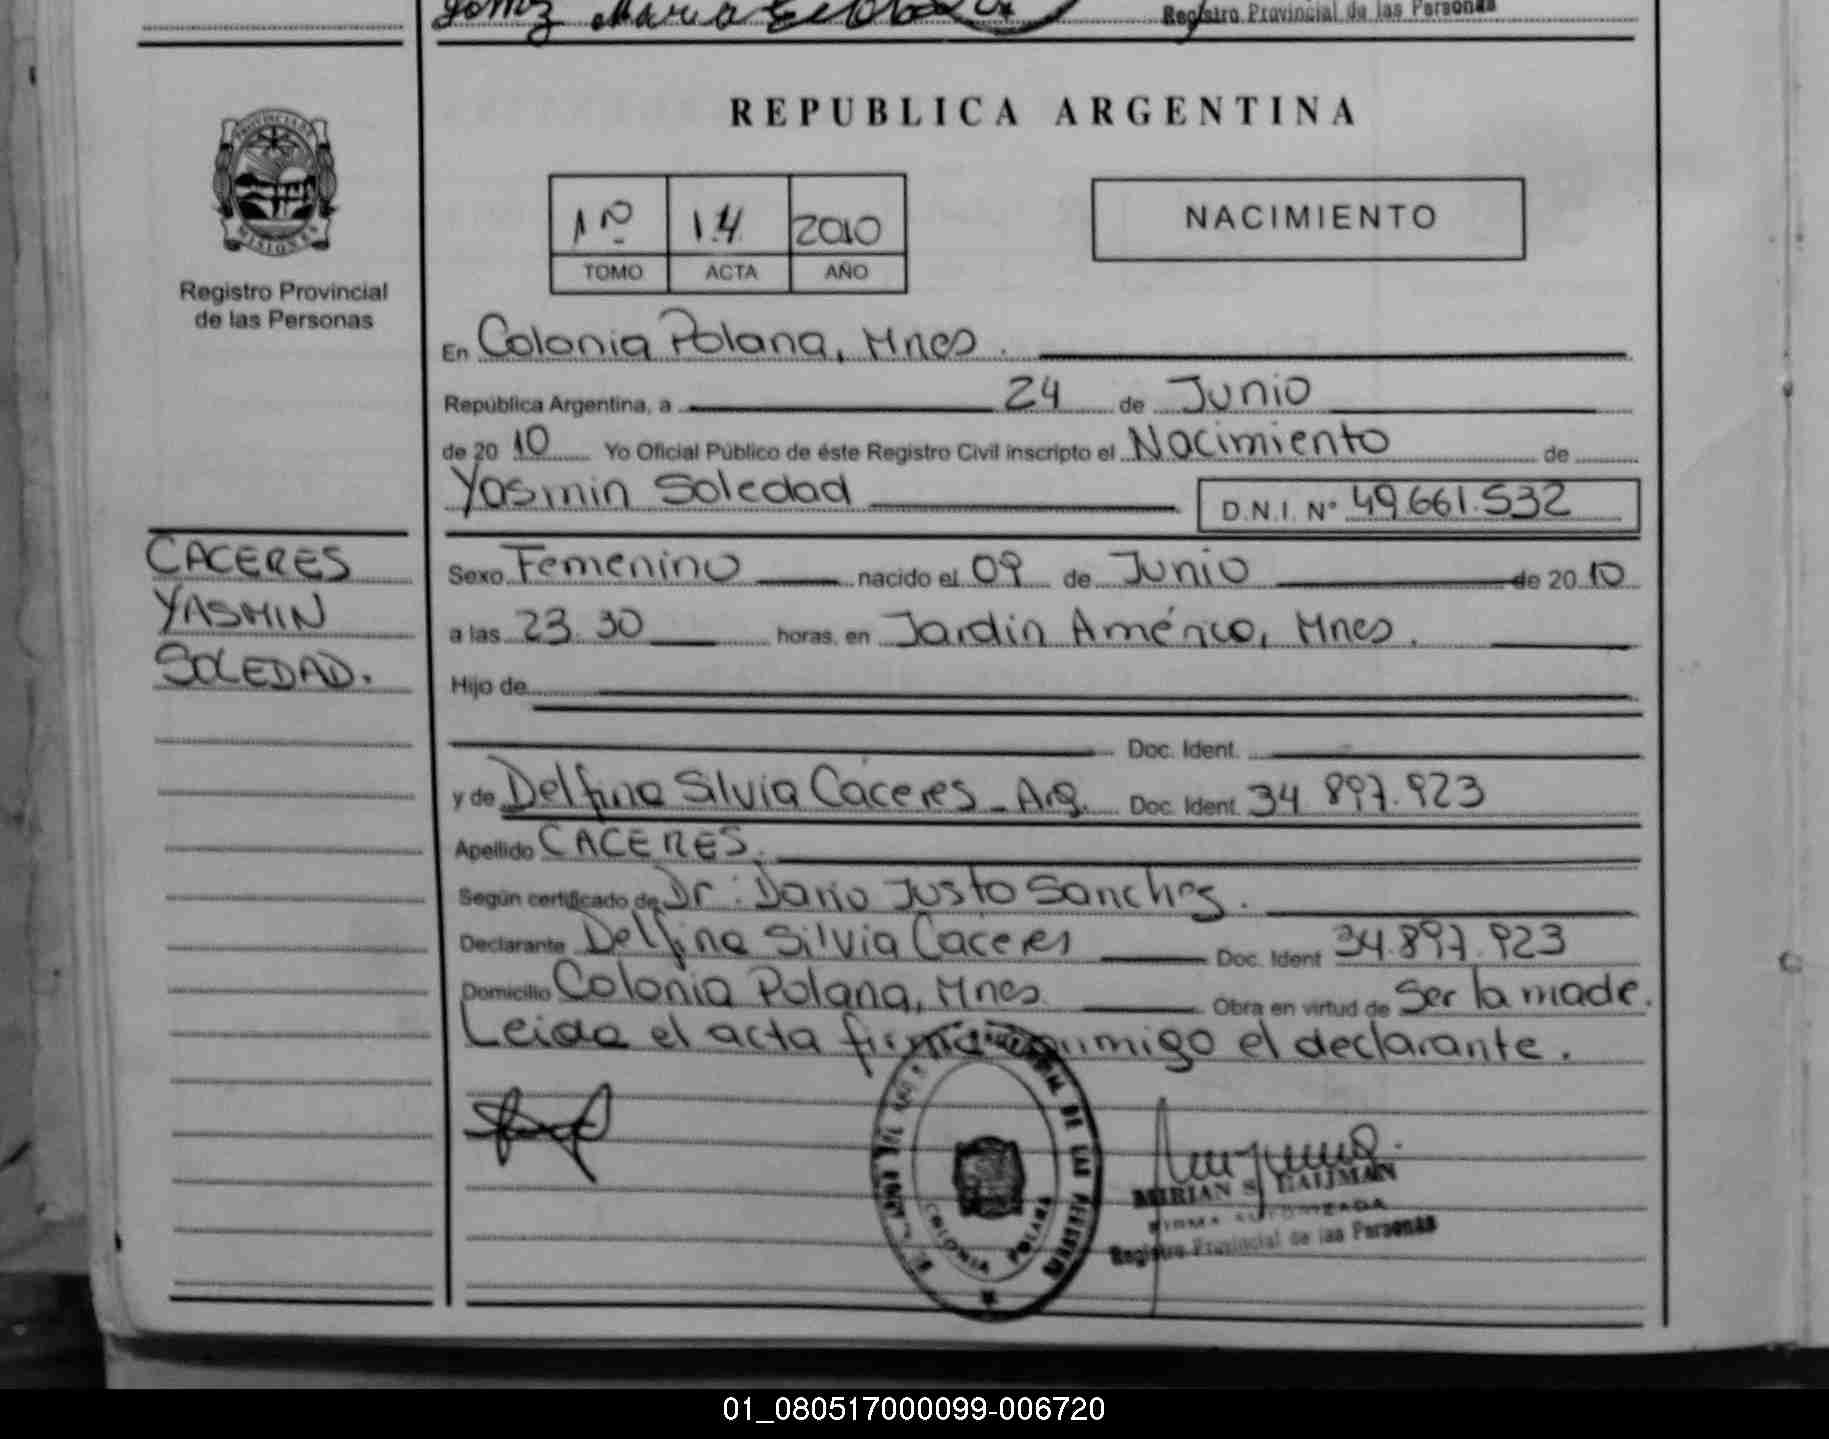 Registro Provincial de las Personas
PROVINCIA DE
MISIONES
Registro Provincial
de las Personas
REPUBLICA ARGENTINA
1º 14 2010
TOMO ACTA AÑO
NACIMIENTO
En Colonia Polana, Mnes.
República Argentina, a 24 de Junio
de 20 10 Yo Oficial Público de éste Registro Civil inscripto el Nacimiento de
Yasmin Soledad D.N.I. Nº 49.661.532
CACERES
YASMIN
SOLEDAD.
Sexo Femenino nacido el 09 de Junio de 20 10
a las 23.30 horas, en Jardín América, Mnes.
Hijo de
Doc. Ident.
y de Delfina Silvia Cáceres - Arg. Doc. Ident. 34.897.923
Apellido CACERES.
Según certificado de Dr. Dario Justo Sanchez.
Declarante Delfina Silvia Caceres Doc. Ident 34.897.923
Domicilio Colonia Polana, Mnes. Obra en virtud de Ser la madre.
Leida el acta firma conmigo el declarante.
DE LAS PERSONAS
COLONIA POLANA
MIRIAN S.
FIRMA AUTORIZADA
Registro Provincial de las Personas
01_080517000099-006720